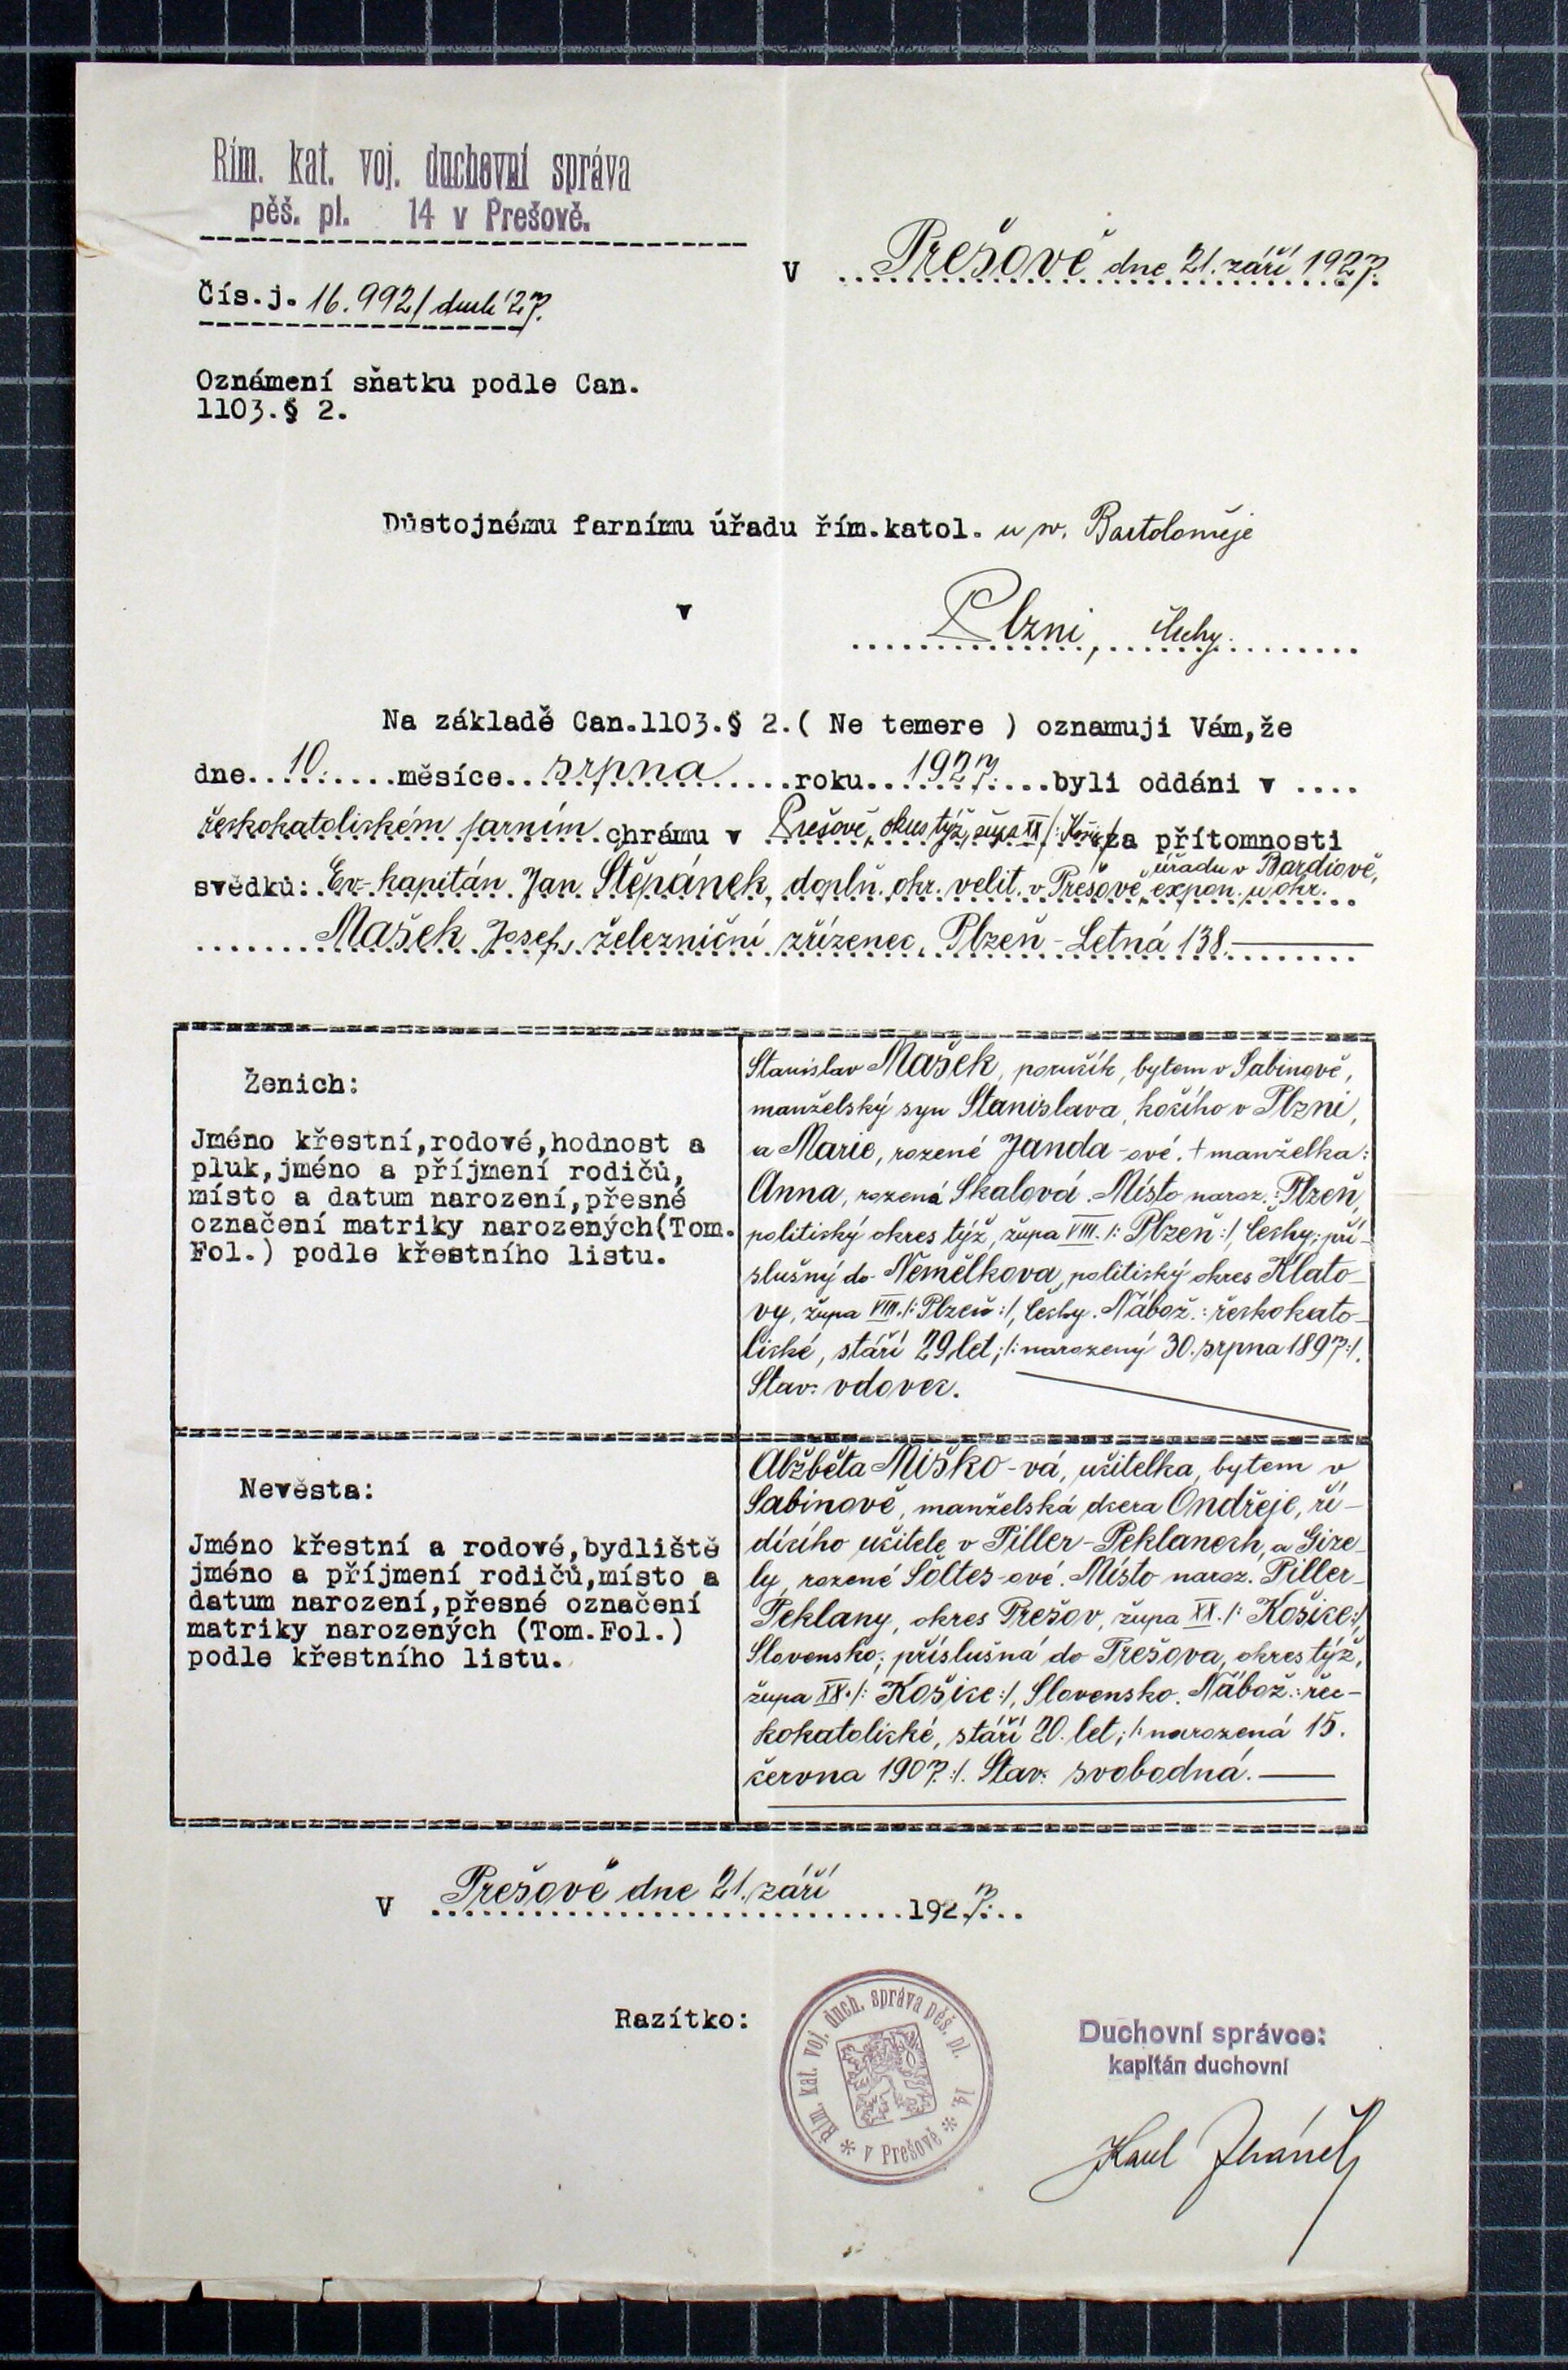 Řím. kat. voj. duchovní správa
pěš. pl. 14 v Prešově.
V Prešově dne 21. září 1927.
Čís.j. 16.992/duch '27.
Oznámení sňatku podle Can.
1103.§ 2.
Důstojnému farnímu úřadu řím.katol. u sv. Bartoloměje
v
Plzni, Čechy.
Na základě Can.1103.§ 2.( Ne temere ) oznamuji Vám,že
dne 10. měsíce srpna roku 1927. byli oddáni v
řeckokatolickém farním chrámu v Prešově, okres týž, župa XX /: Košice za přítomnosti
úřadu v Bardiově,
svědků: Ev. kapitán Jan Štěpánek, doplň. okr. velit. v Prešově, expon. u okr.
Mašek Josef, železniční zřízenec, Plzeň - Letná 138.
Ženich:
Jméno křestní,rodové,hodnost a
pluk,jméno a příjmení rodičů,
místo a datum narození,přesné
označení matriky narozených(Tom.
Fol.) podle křestního listu.
Stanislav Mašek, poručík, bytem v Sabinově,
manželský syn Stanislava, kočího v Plzni,
a Marie, rozené Janda-ové. + manželka:
Anna, rozená Skalová. Místo naroz.: Plzeň,
politický okres týž, župa VIII. /: Plzeň :/, Čechy; pří-
slušný do Nemělkova, politický okres Klato-
vy, župa VIII. /: Plzeň :/, Čechy. Nábož.: řeckokato-
lické, stáří 29 let; /: narozený 30. srpna 1897 :/.
Stav: vdovec.
Nevěsta:
Jméno křestní a rodové,bydliště
jméno a příjmení rodičů,místo a
datum narození,přesné označení
matriky narozených (Tom.Fol.)
podle křestního listu.
Alžběta Miško-vá, učitelka, bytem v
Sabinově, manželská dcera Ondřeje, ří-
dícího učitele v Piller-Peklanech, a Gize-
ly, rozené Šoltes-ové. Místo naroz. Piller-
Peklany, okres Prešov, župa XX. /: Košice :/,
Slovensko; příslušná do Prešova, okres týž,
župa XX. /: Košice :/, Slovensko. Nábož.: řec-
kokatolické, stáří 20. let; /: narozená 15.
června 1907. :/. Stav: svobodná.
V Prešově dne 21. září 1927.
Razítko:
Řím. kat. voj. duch. správa pěš. pl. 14. * v Prešově *
Duchovní správce:
kapitán duchovní
Karel